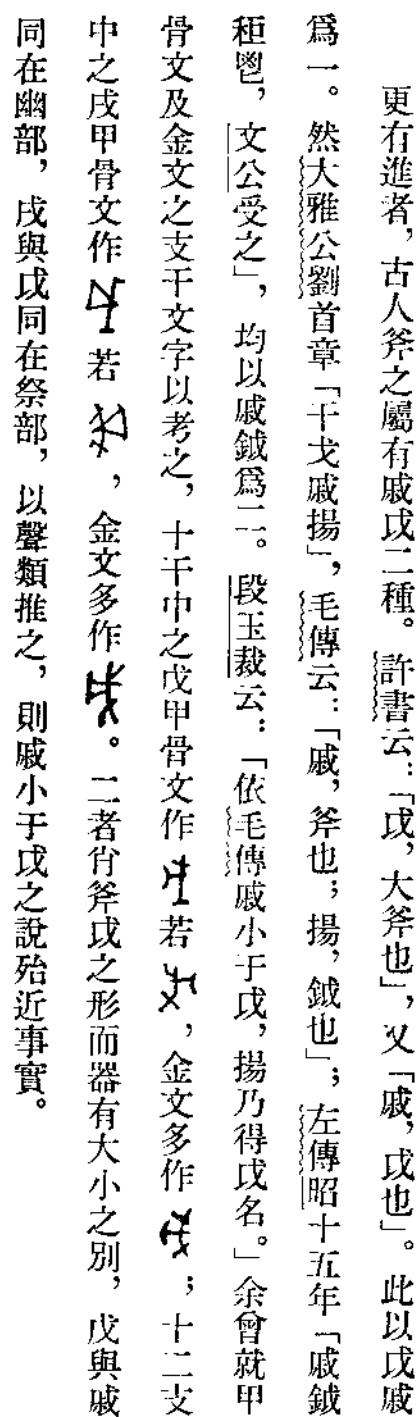 更有進者，古人斧之屬有戚戉二種。許書云：「戉，大斧也」，又「戚，戉也」。此以戉戚
爲一。然大雅公劉首章「干戈戚揚」，毛傳云：「戚，斧也；揚，鉞也」；左傳昭十五年「戚鉞
秬鬯，文公受之」，均以戚鉞爲二。段玉裁云：「依毛傳戚小于戉，揚乃得戉名。」余曾就甲
骨文及金文之支干文字以考之，十干中之戊甲骨文作 若 ，金文多作 ；十二支
中之戌甲骨文作 若 ，金文多作 。二者肖斧戉之形而器有大小之別，戊與戚
同在幽部，戌與戉同在祭部，以聲類推之，則戚小于戉之說殆近事實。